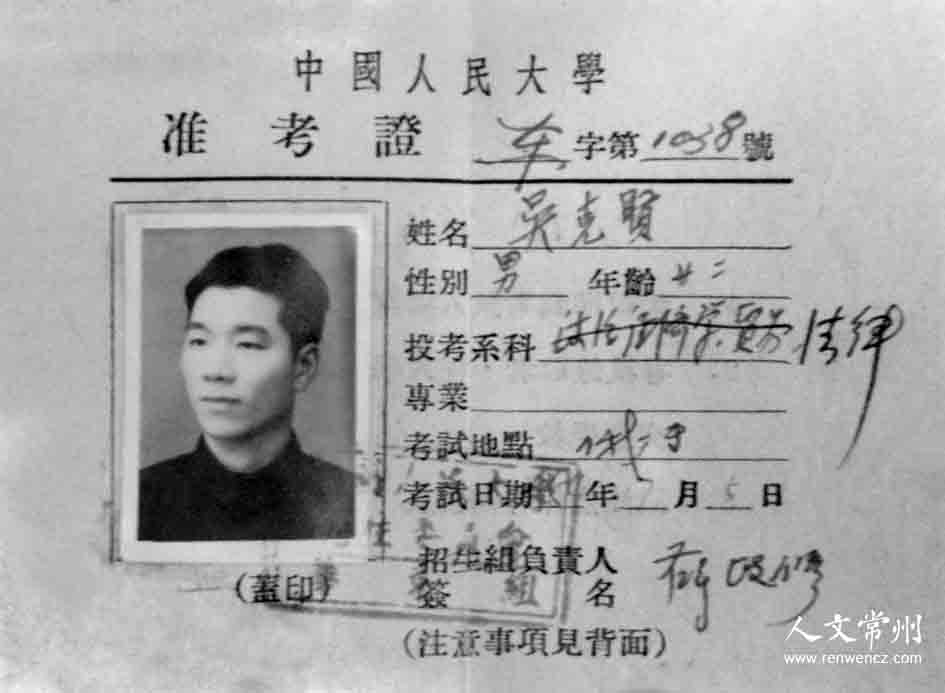 中國人民大學
准考證 字第1038號
姓名 吳克賢
性別 男 年齡 廿二
投考系科 法律
專業
考試地點
考試日期 年 7 月 5 日
招生組負責人
簽名
(蓋印)
(注意事項見背面)
人文常州
www.renwencz.com